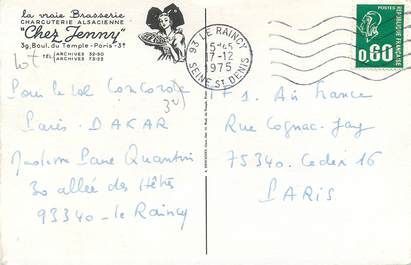 la vraie Brasserie
CHARCUTERIE ALSACIENNE
"Chez Jenny"
39, Boul. du Temple - Paris - 3e
TÉL. ARCHIVES 32-50
ARCHIVES 75-02
93 LE RAINCY
15H45
17-12
1975
SEINE ST DENIS
POSTES
0,60
REPUBLIQUE FRANÇAISE
Pour le vol Concorde
Paris. DAKAR
Pane Quantin
30 allée des Hêtres
93340 - le Raincy
Air France
Rue Cognac-Jay
75340. Cedex 16
PARIS